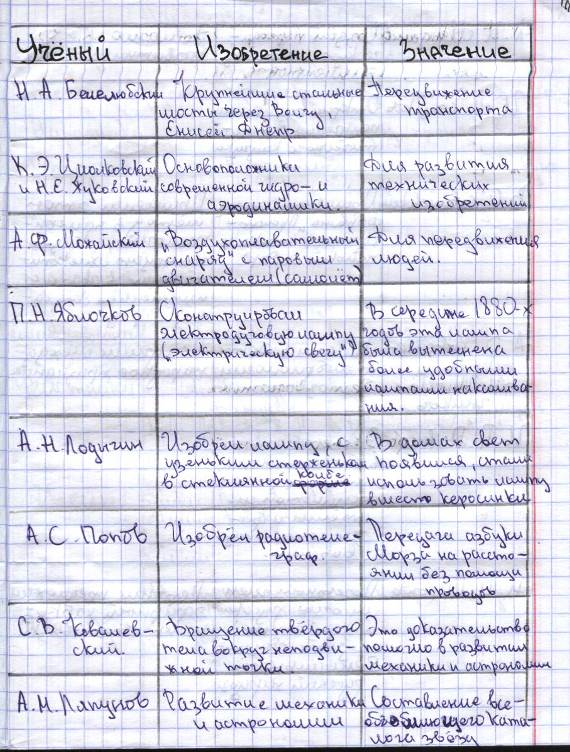 Учёный Изобретение Значение
Н. А. Белелюбский
Крупнейшие стальные
мосты через Волгу,
Енисей Днепр
Передвижение
транспорта
К. Э. Циолковский
и Н.Е. Жуковский
Основоположники
современной гидро- и
аэродинамики.
Для развития
технических
изобретений
А. Ф. Можайский
"Воздухоплавательный
снаряд" с паровым
двигателем (самолёт)
Для передвижения
людей.
П. Н. Яблочков
Сконструировал
электродуговую лампу
("электрическую свечу")
В середине 1880-х
годов эта лампа
была вытеснена
более удобными
лампами накалива-
ния.
А. Н. Лодыгин
Изобрёл лампу, с
узеньким стерженьком
в стеклянной колбе
В домах свет
появился, стали
использовать лампу
вместо керосинки
А. С. Попов
Изобрёл радиотеле-
граф.
Передача азбуки
Морзе на рассто-
янии без помощи
проводов
С. В. Ковалев-
ский.
Вращение твёрдого
тела вокруг неподви-
жной точки.
Это доказательство
помогло в развитии
механики и астрономии
А. М. Ляпунов
Развитие механики
и астрономии
Составление все-
лога звёзд